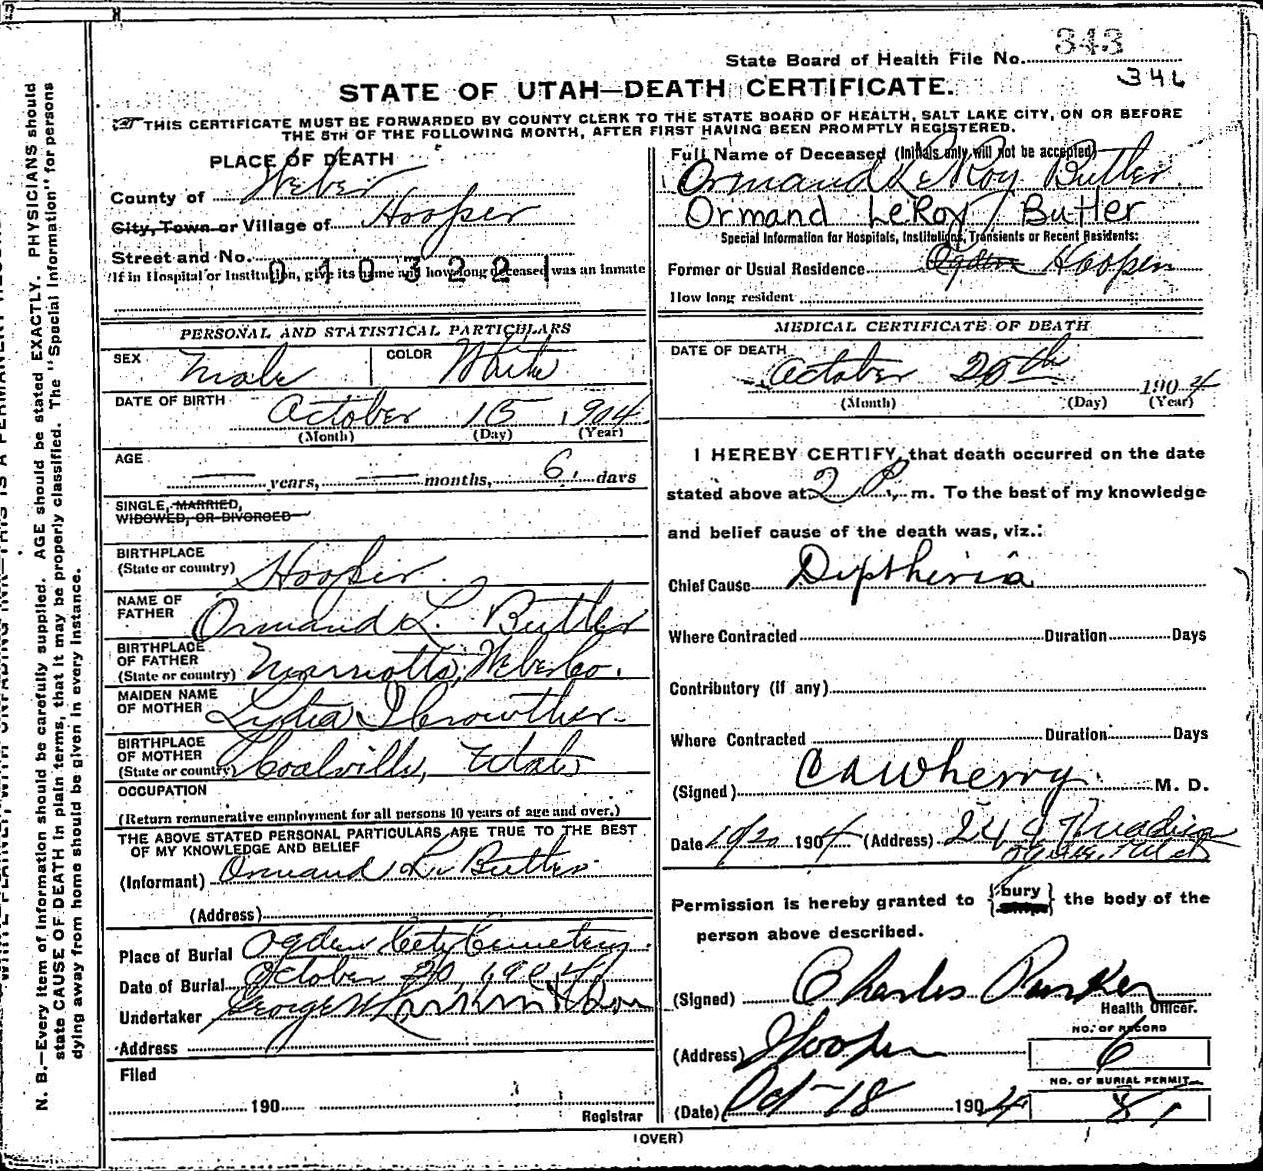 State Board of Health File No. 343
346
STATE OF UTAH—DEATH CERTIFICATE.
THIS CERTIFICATE MUST BE FORWARDED BY COUNTY CLERK TO THE STATE BOARD OF HEALTH, SALT LAKE CITY, ON OR BEFORE
THE 5TH OF THE FOLLOWING MONTH, AFTER FIRST HAVING BEEN PROMPTLY REGISTERED.
PLACE OF DEATH
County of Weber
City, Town or Village of Hooper
Street and No.
0403221
If in Hospital or Institution, give its name and how long deceased was an inmate
Full Name of Deceased (Initials only will not be accepted)
Ormand LeRoy Butler
Ormand LeRoy Butler
Special Information for Hospitals, Institutions, Transients or Recent Residents:
Former or Usual Residence Ogden Hooper
How long resident
PERSONAL AND STATISTICAL PARTICULARS
SEX Male COLOR White
DATE OF BIRTH October 15 1904
(Month) (Day) (Year)
AGE — years, — months, 6 days
SINGLE, MARRIED,
WIDOWED, OR DIVORCED
BIRTHPLACE
(State or country) Hooper
NAME OF
FATHER Ormand L. Butler
BIRTHPLACE
OF FATHER
(State or country) Marriotts, Weber Co.
MAIDEN NAME
OF MOTHER Lydia I Crowther
BIRTHPLACE
OF MOTHER
(State or country) Coalville, Utah
OCCUPATION
(Return remunerative employment for all persons 10 years of age and over.)
THE ABOVE STATED PERSONAL PARTICULARS ARE TRUE TO THE BEST
OF MY KNOWLEDGE AND BELIEF
(Informant) Ormand L. Butler
(Address)
Place of Burial Ogden City Cemetery
Date of Burial October 20, 1904
Undertaker George W Larkin & Son
Address
Filed
190
Registrar
MEDICAL CERTIFICATE OF DEATH
DATE OF DEATH October 20th 1904
(Month) (Day) (Year)
I HEREBY CERTIFY, that death occurred on the date
stated above at 2 P. m. To the best of my knowledge
and belief cause of the death was, viz.:
Chief Cause Diptheria
Where Contracted Duration Days
Contributory (if any)
Where Contracted Duration Days
(Signed) CAWherry M. D.
Date 10/20 1904 (Address)
Permission is hereby granted to { bury } the body of the
person above described.
(Signed) Charles Parker
Health Officer.
(Address) Hooper
NO. OF RECORD
6
NO. OF BURIAL PERMIT
(Date) Oct 18 1904
(OVER)
N. B.—Every item of information should be carefully supplied. AGE should be stated EXACTLY. PHYSICIANS should
state CAUSE OF DEATH in plain terms, that it may be properly classified. The "Special Information" for persons
dying away from home should be given in every instance.